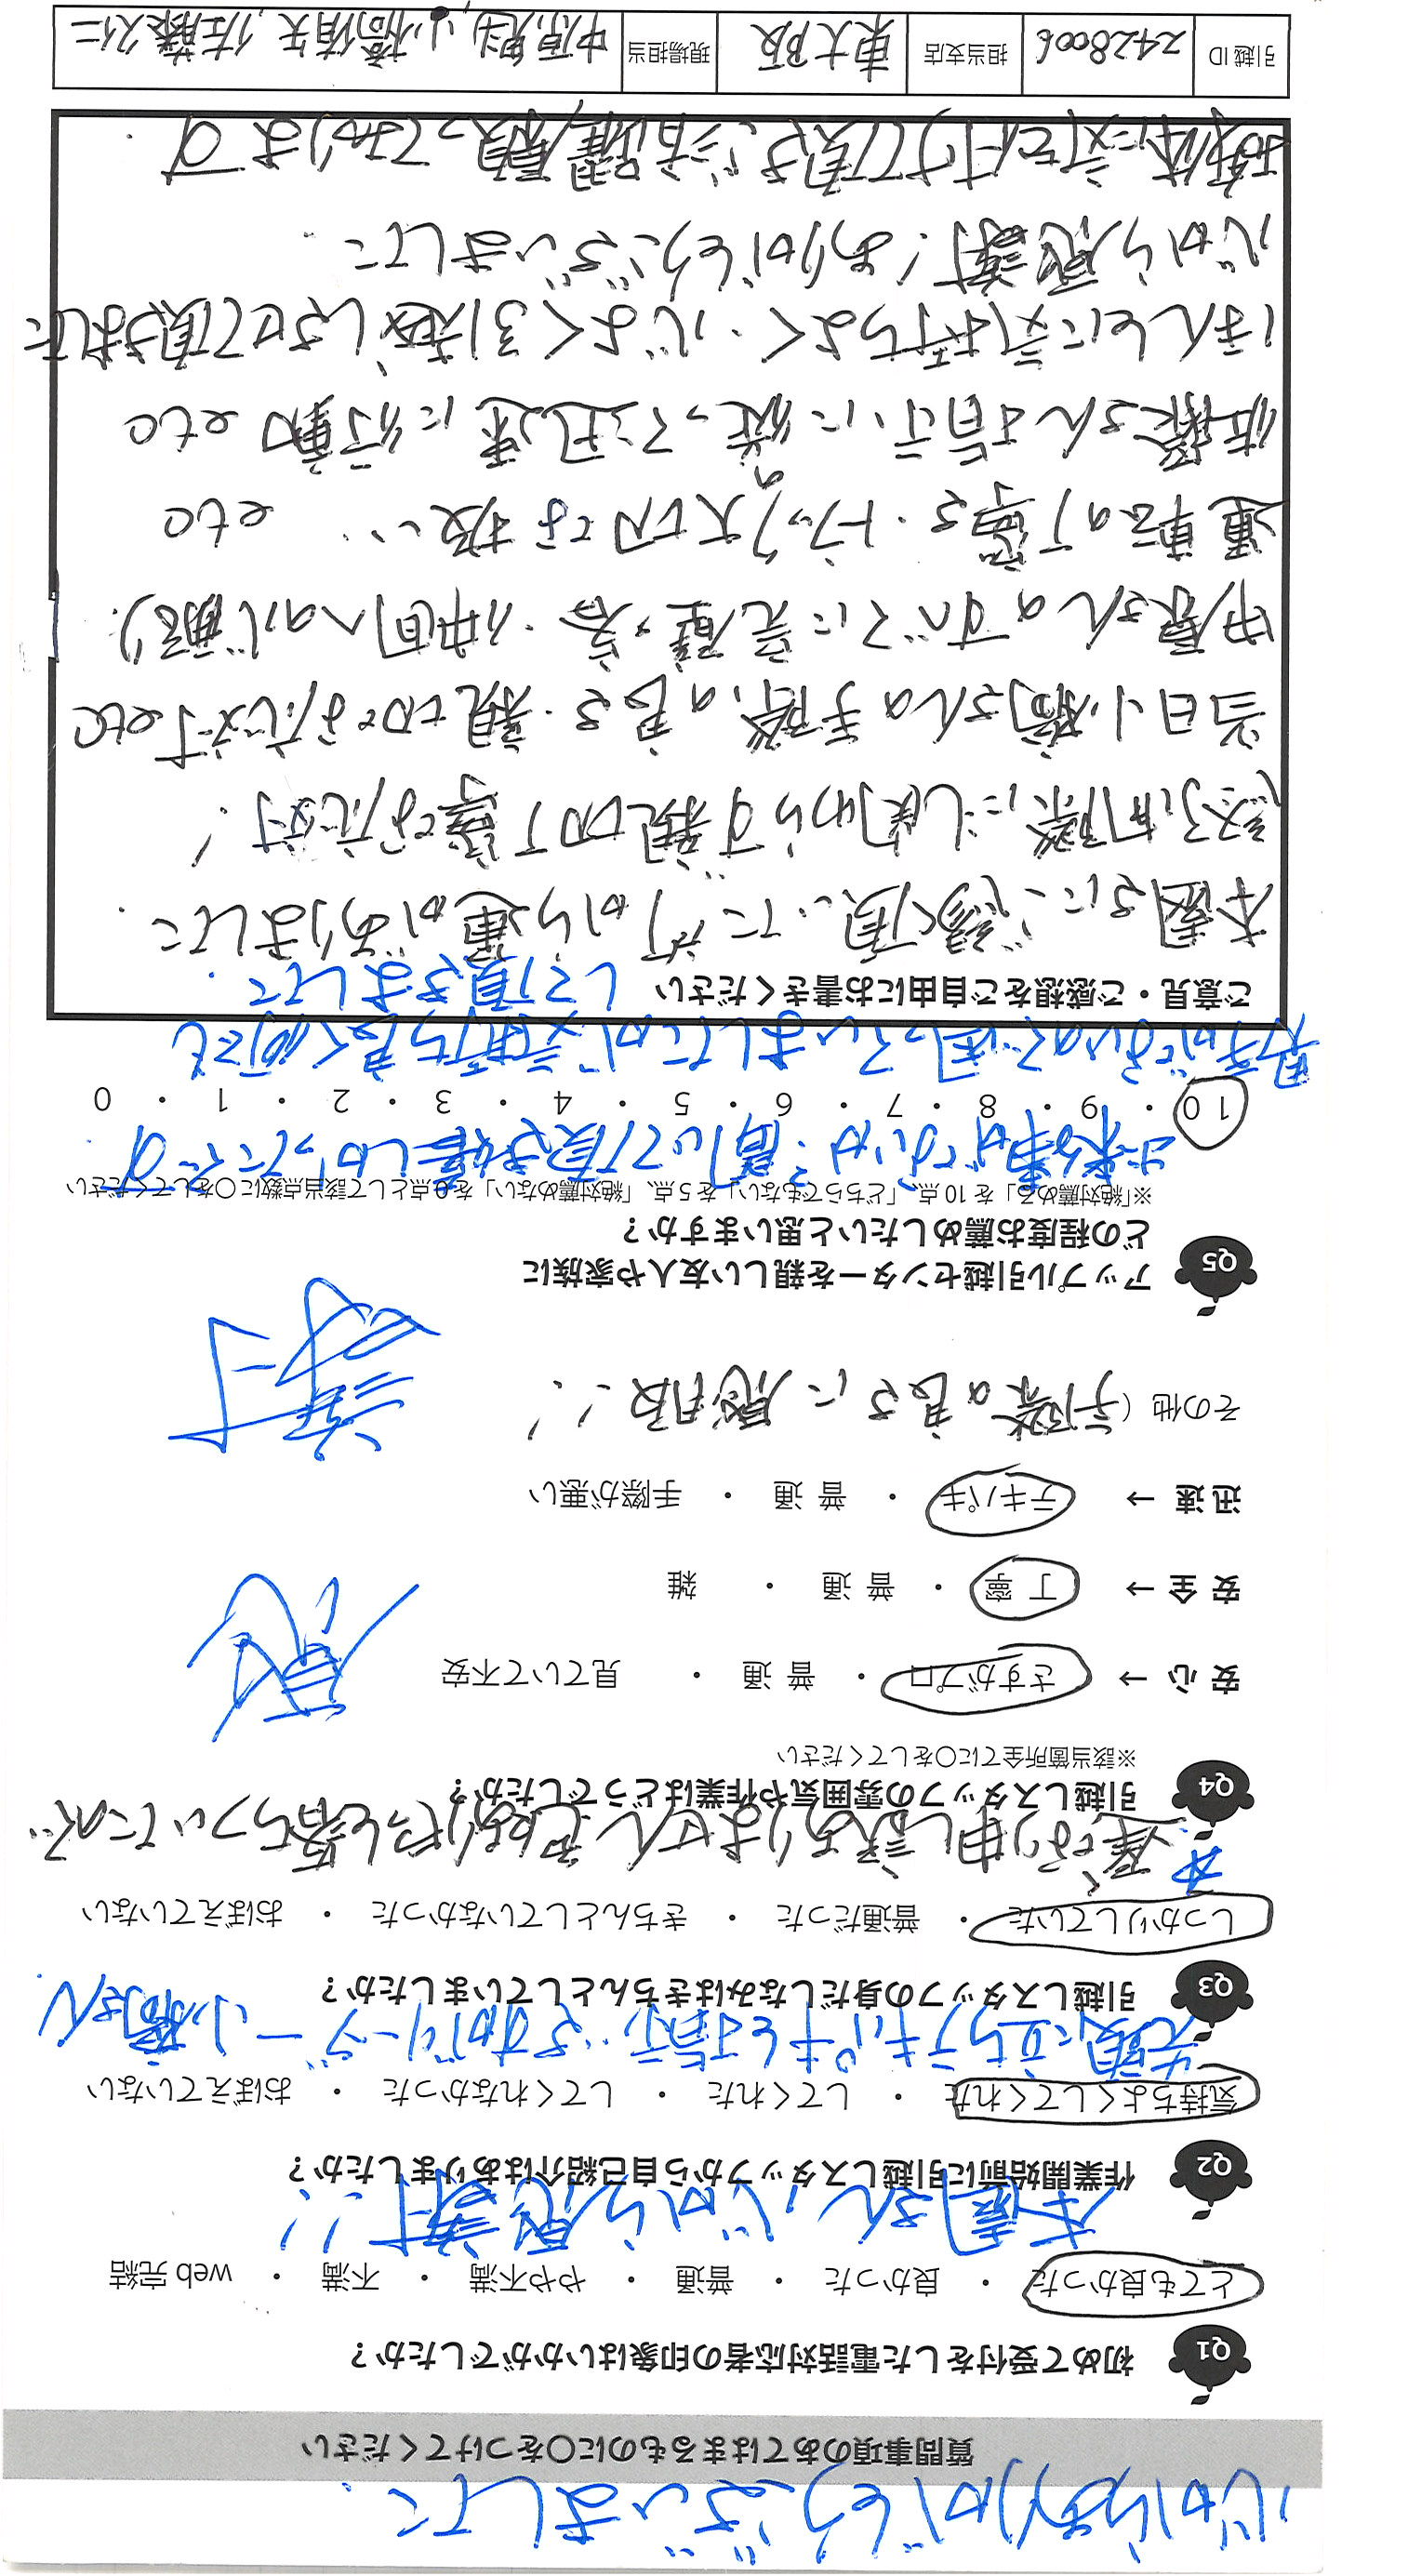 心からありがとうございました
質問事項のあてはまるものに○をつけてください
Q1 初めて受付をした電話対応者の印象はいかがでしたか？
とても良かった ・ 良かった ・ 普通 ・ やや不満 ・ 不満 ・ web 完結
本園さん、心から感謝!!
Q2 作業開始前に引越しスタッフから自己紹介はありましたか？
気持ちよくしてくれた ・ してくれた ・ してくれなかった ・ おぼえていない
先頭に立ちテキパキと指示、さすがリーダー 小楠さん
Q3 引越しスタッフの身だしなみはきちんとしていましたか？
しっかりしていた ・ 普通だった ・ きちんとしていなかった ・ おぼえていない
遅くなり申し訳ありません
Q4 引越しスタッフの雰囲気や作業はどうでしたか？
※該当箇所全てに○をしてください
安 心 → さすがプロ ・ 普 通 ・ 見ていて不安
安 全 → 丁 寧 ・ 普 通 ・ 雑
迅 速 → テキパキ ・ 普 通 ・ 手際が悪い
その他（手際の良さに感服!!
感
謝
Q5 アップル引越センターを親しい友人や家族に
どの程度お薦めしたいと思いますか？
※「絶対薦める」を 10 点、「どちらでもない」を 5 点、「絶対薦めない」を 0 点として該当点数に○をしてください
出来る事がないか？聞いて頂き嬉しかったです
10 ・ 9 ・ 8 ・ 7 ・ 6 ・ 5 ・ 4 ・ 3 ・ 2 ・ 1 ・ 0
男手がないので困っていましたが気持ち良く何でも
ご意見・ご感想をご自由にお書きください して頂きまして
本園さんにご縁を頂いた所から運がありました
当日小楠さんの手際の良さ・親切な応対 etc
中原さんのすべてに完璧な・仲間への心配り
運転の丁寧さ・トラックの大切な扱い… etc
佐藤さん 指示に従って迅速に行動 etc
ほんとに気持ちよく・心よく引越しさせて頂きました
心から感謝！ありがとうございました
お体に気を付けて頂き、ご活躍願っております
引越 ID 2428006 担当支店 東大阪 現場担当